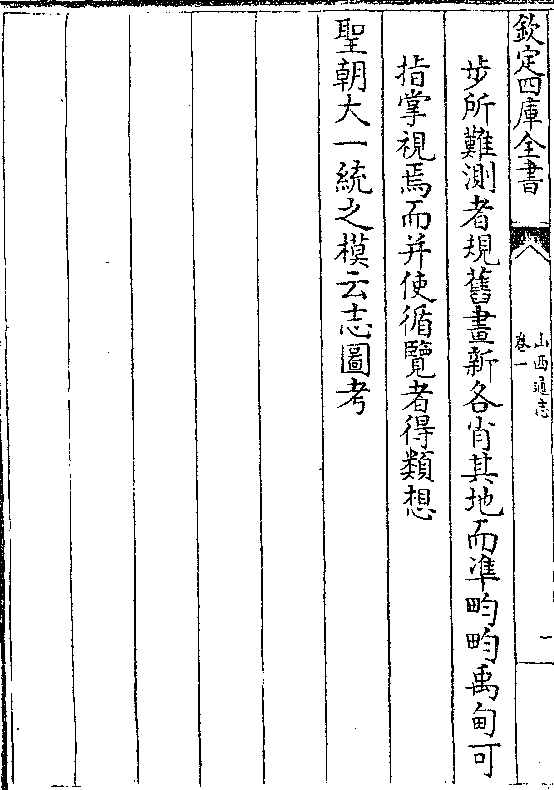 欽定四庫全書
山西通志
卷一
一
步所難測者規舊畫新各肖其地而準畇畇禹甸可
指掌視焉而并使循覽者得類想
聖朝大一統之模云志圖考